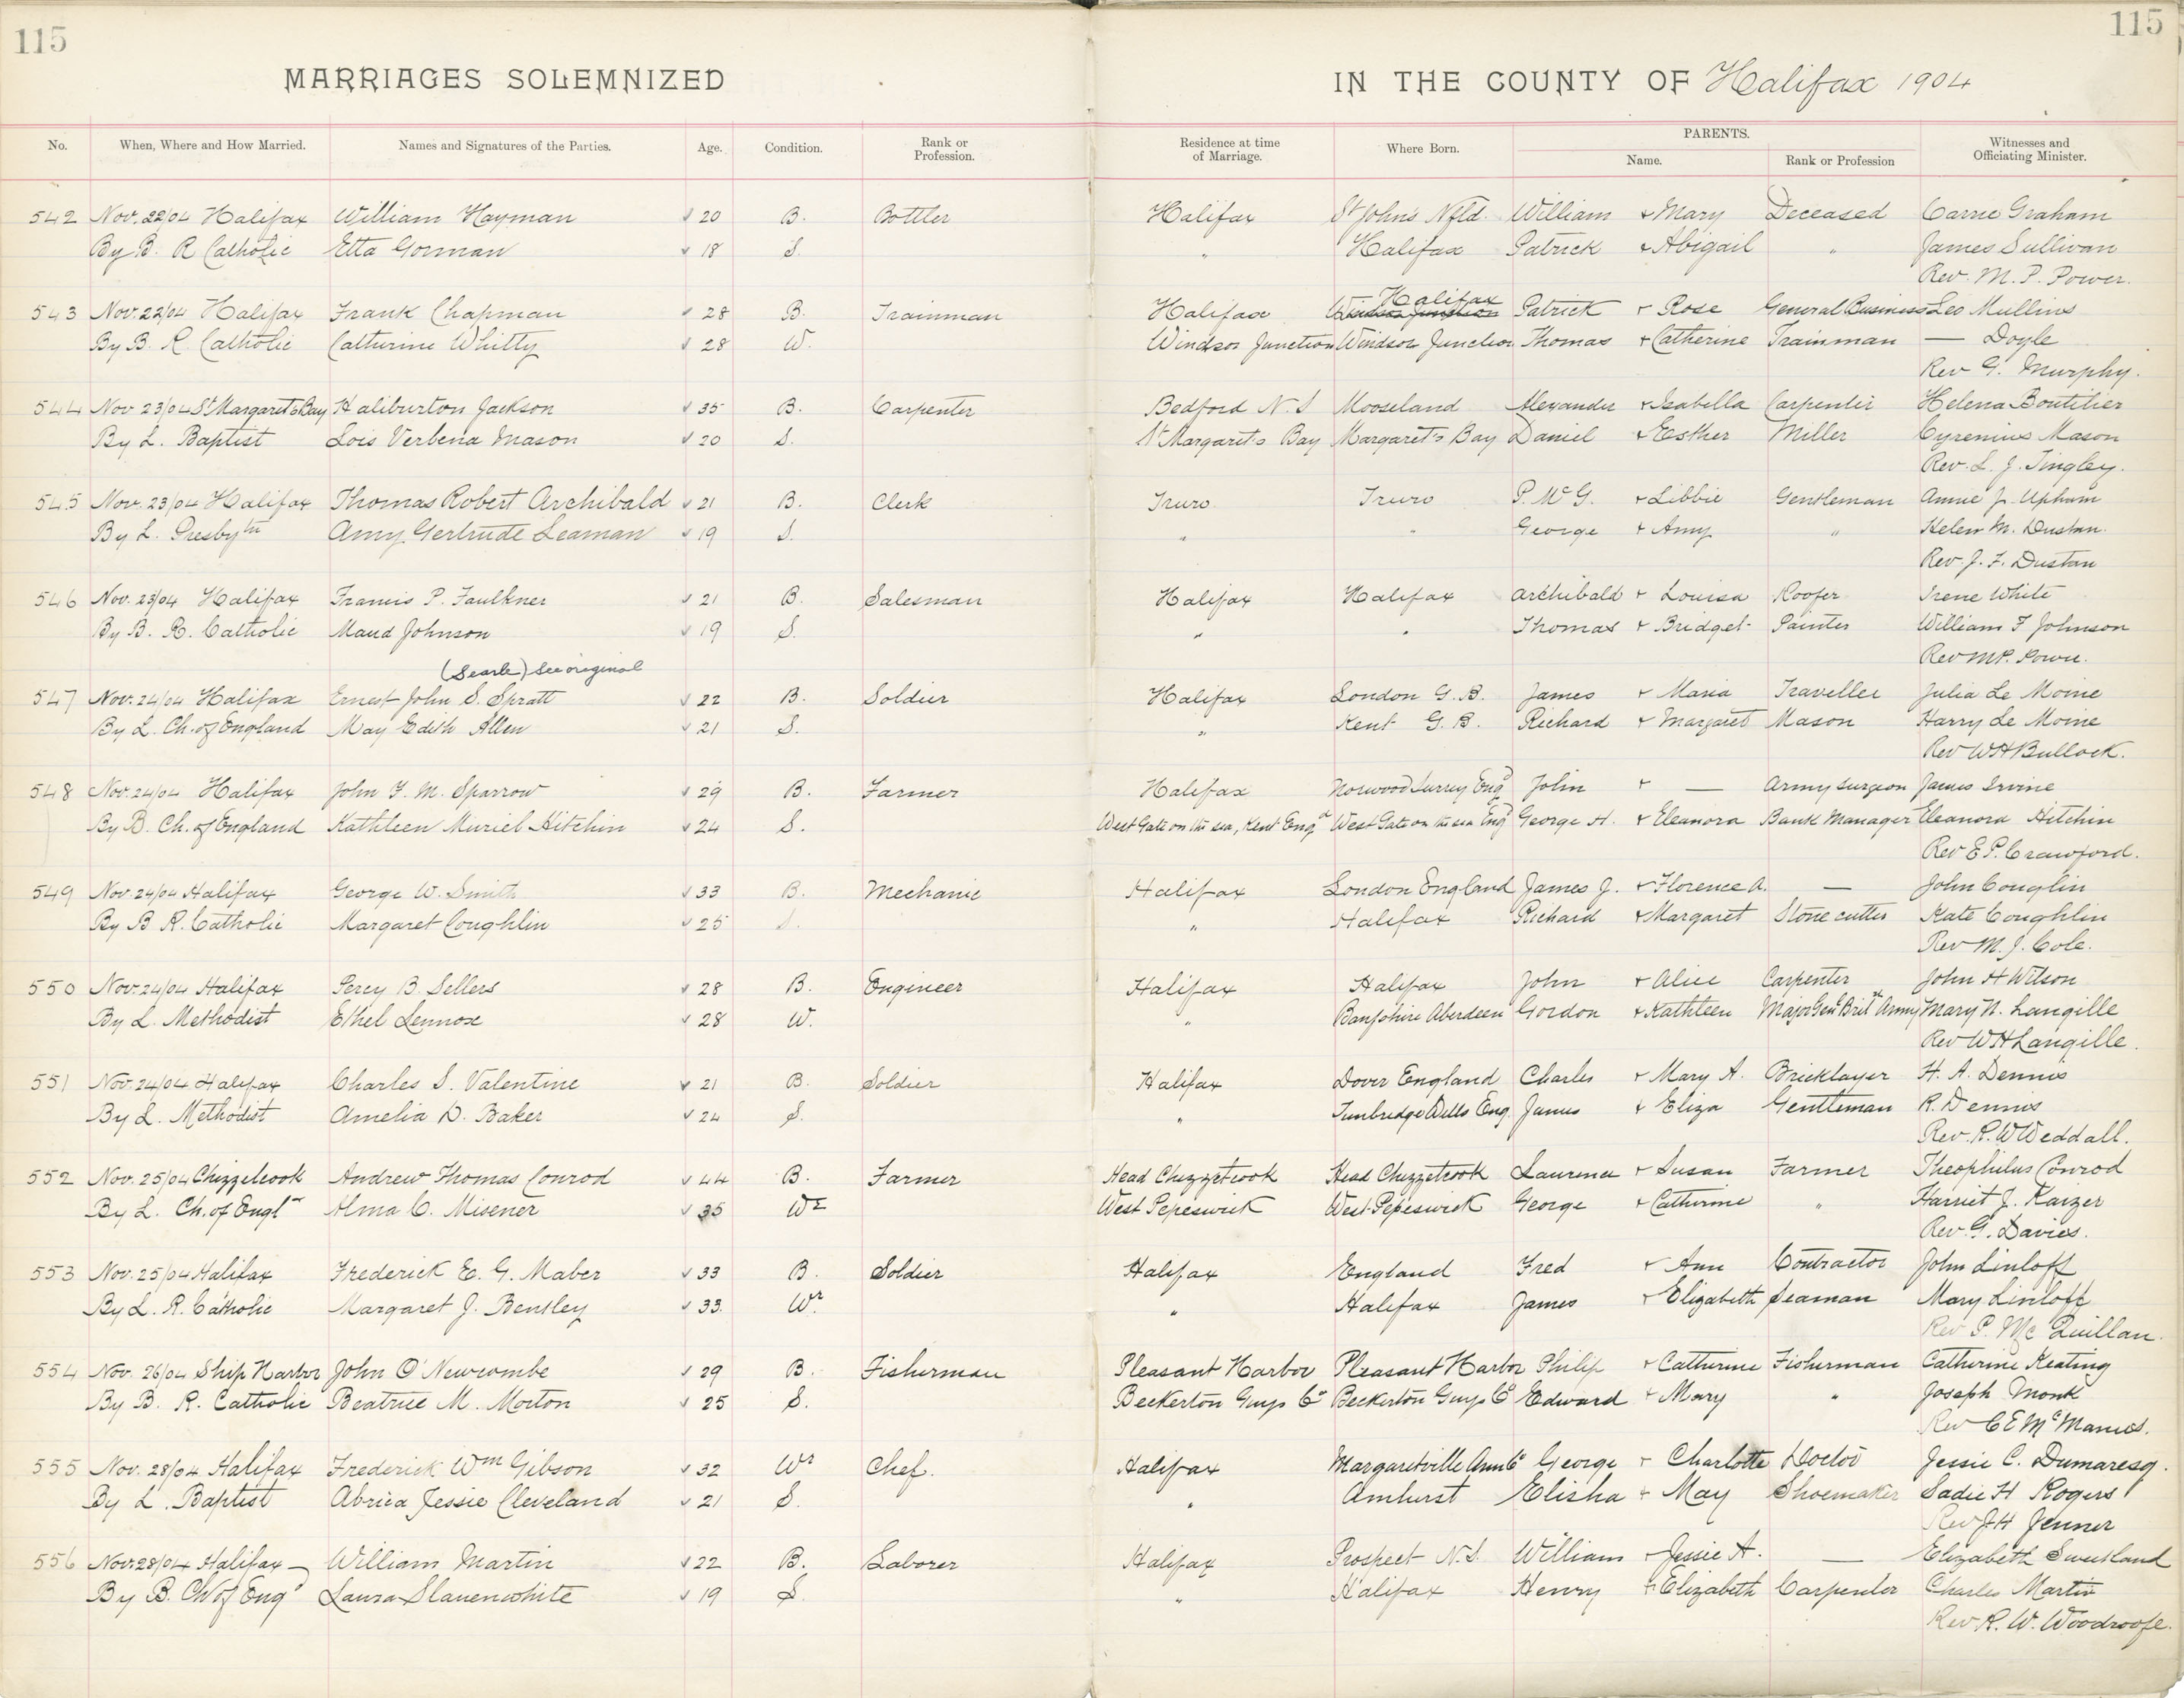 115 115
MARRIAGES SOLEMNIZED IN THE COUNTY OF Halifax 1904
No. When, Where and How Married. Names and Signatures of the Parties. Age. Condition. Rank or Profession. Residence at time of Marriage. Where Born. PARENTS. Name. Rank or Profession Witnesses and Officiating Minister.
542 Nov. 22/04 Halifax William Hayman 20 B. Bottler Halifax St John's Nfld. William & Mary Deceased Carrie Graham
By B. R Catholic Etta Gorman 18 S. " Halifax Patrick & Abigail " James Sullivan
Rev. M. P. Power.
Halifax
543 Nov. 22/04 Halifax Frank Chapman 28 B. Trainman Halifax Windsor Junction Patrick & Rose General Business Leo Mullins
By B. R. Catholic Catherine Whitty 28 W. Windsor Junction Windsor Junction Thomas & Catherine Trainman — Doyle
Rev G. Murphy.
544 Nov 23/04 St Margaret's Bay Haliburton Jackson 35 B. Carpenter Bedford N. S Mooseland Alexander & Isabella Carpenter Helena Boutilier
By L. Baptist Lois Verbena Mason 20 S. St Margaret's Bay Margaret's Bay Daniel & Esther Miller Cyrenius Mason
Rev. L. J. Tingley.
545 Nov. 23/04 Halifax Thomas Robert Archibald 21 B. Clerk Truro Truro P. McG. & Libbie Gentleman Annie J. Upham
By L. Presbytn Amy Gertrude Leaman 19 S. " " George & Amy " Helen M. Dustan.
Rev. J. F. Dustan
546 Nov. 23/04 Halifax Francis P. Faulkner 21 B. Salesman Halifax Halifax Archibald & Louisa Roofer Irene White
By B. R. Catholic Maud Johnson 19 S. " " Thomas & Bridget Painter William F Johnson
Rev M P. Power.
(Searle) See original
547 Nov. 24/04 Halifax Ernest John S. Spratt 22 B. Soldier Halifax London G. B. James & Maria Traveller Julia Le Moine
By L. Ch. of England May Edith Allen 21 S. " Kent G. B. Richard & Margaret Mason Harry Le Moine
Rev W H Bullock.
548 Nov. 24/04 Halifax John F. M. Sparrow 29 B. Farmer Halifax Norwood Surrey Engd John & — Army surgeon James Irvine
By B. Ch. of England Kathleen Muriel Hitchin 24 S. West Gate on the sea, Kent Engd West Gate on the sea Engd George H. & Eleanora Bank Manager Eleanora Hitchin
Rev E. P. Crawford.
549 Nov. 24/04 Halifax George W. Smith 33 B. Mechanic Halifax London England James J. & Florence A. — John Couglin
By B R. Catholic Margaret Coughlin 25 S. " Halifax Richard & Margaret Stone cutter Kate Coughlin
Rev M. J. Cole.
550 Nov. 24/04 Halifax Percy B. Sellers 28 B. Engineer Halifax Halifax John & Alice Carpenter John H Wilson
By L. Methodist Ethel Lennox 28 W. " Banfshire Aberdeen Gordon & Kathleen Major Genl Brit Army Mary N. Langille
Rev W H Langille.
551 Nov. 24/04 Halifax Charles S. Valentine 21 B. Soldier Halifax Dover England Charles & Mary A. Bricklayer H. A. Dennis
By L. Methodist Amelia D. Baker 24 S. " Tunbridge Wells Eng. James & Eliza Gentleman R. Dennis
Rev. R. W Weddall.
552 Nov. 25/04 Chizzelcook Andrew Thomas Conrod 44 B. Farmer Head Chezzetcook Head Chezzetcook Laurence & Susan Farmer Theophilus Conrod
By L. Ch. of Engl Alma C. Misener 35 Wr West Pepeswick West Pepeswick George & Catherine " Harriet J. Kaizer
Rev. G. Davies.
553 Nov. 25/04 Halifax Frederick E. G. Maber 33 B. Soldier Halifax England Fred & Ann Contractor John Linloff
By L. R. Catholic Margaret J. Bensley 33 Wr " Halifax James & Elizabeth Seaman Mary Linloff
Rev P. McQuillan.
554 Nov. 26/04 Ship Harbor John O'Newcombe 29 B. Fisherman Pleasant Harbor Pleasant Harbor Philip & Catherine Fisherman Catherine Keating
By B. R. Catholic Beatrice M. Morton 25 S. Beckerton Guys Co Beckerton Guys Co Edward & Mary " Joseph Monk
Rev C E McManus.
555 Nov. 28/04 Halifax Frederick Wm Gibson 32 Wr Chef. Halifax Margaretville Ann Co George & Charlotte Doctor Jessie C. Dumaresq.
By L. Baptist Abrica Jessie Cleveland 21 S. " Amherst Elisha & May Shoemaker Sadie H Rogers
Rev J H Jenner
556 Nov 28/04 Halifax William Martin 22 B. Laborer Halifax Prospect N. S. William & Jessie A. — Elizabeth Sweetland
By B. Ch of Engd Laura Slauenwhite 19 S. " Halifax Henry & Elizabeth Carpenter Charles Martin
Rev R. W. Woodroofe.